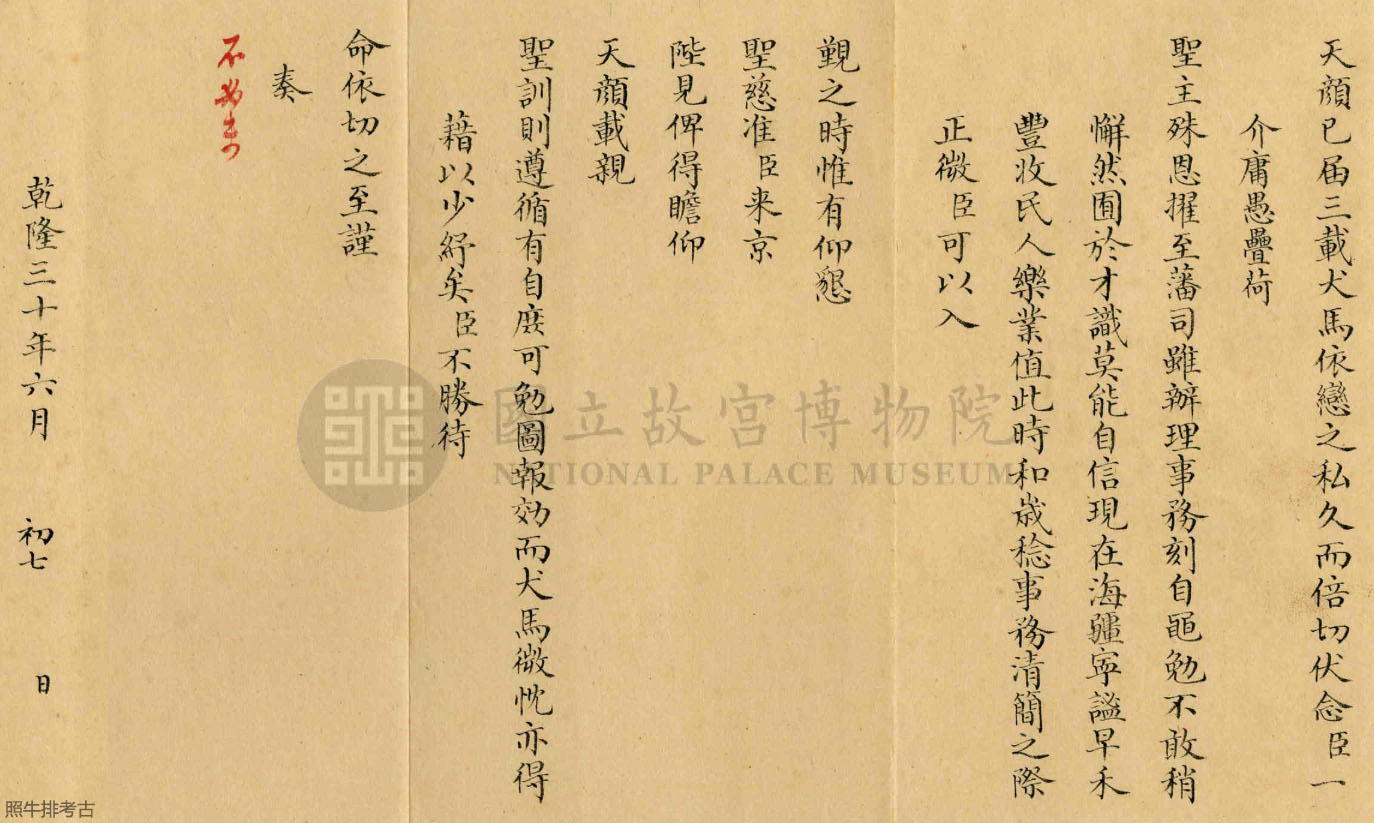 天顏已届三載犬馬依戀之私久而倍切伏念臣一
介庸愚疊荷
聖主殊恩擢至藩司雖辦理事務刻自黽勉不敢稍
懈然囿於才識莫能自信現在海疆寧謐早禾
豐收民人樂業值此時和歲稔事務清簡之際
正微臣可以入
覲之時惟有仰懇
聖慈准臣来京
陛見俾得瞻仰
天顏載親
聖訓則遵循有自庶可勉圖報効而犬馬微忱亦得
藉以少紓矣臣不勝待
命依切之至謹
奏
不必来
乾隆三十年六月 初七 日
國立故宮博物院
NATIONAL PALACE MUSEUM
照牛排考古